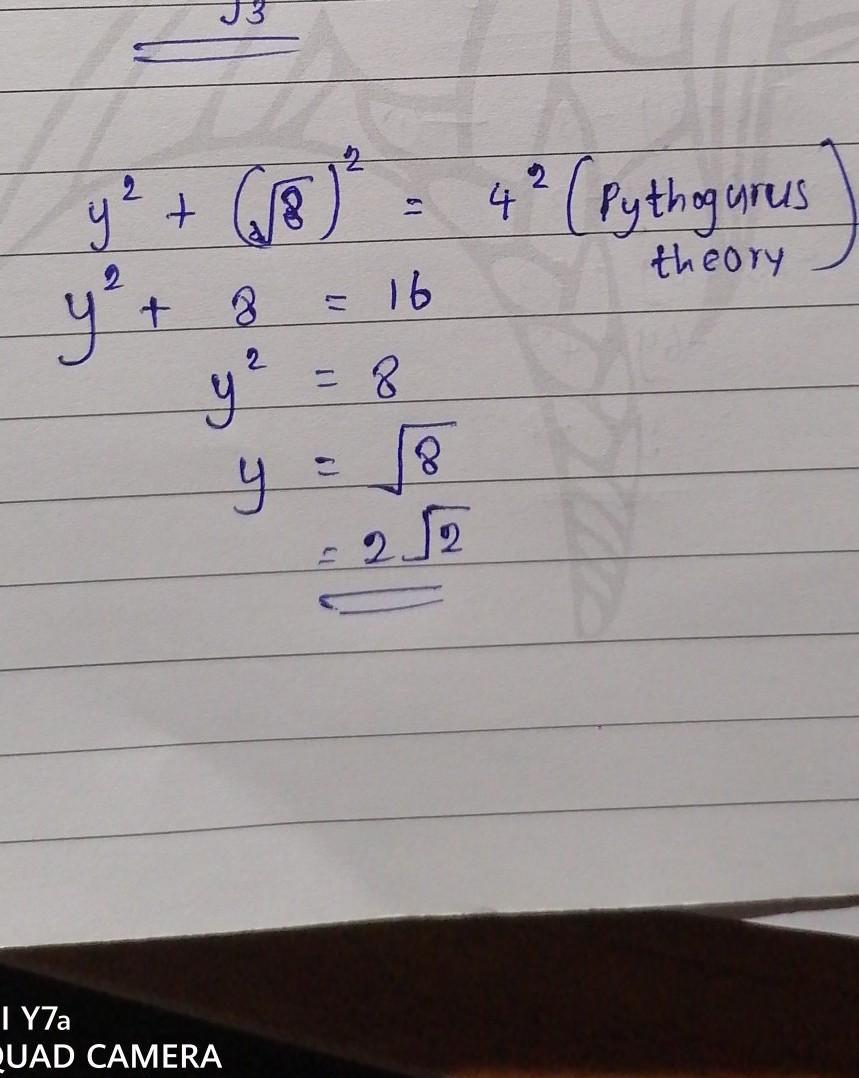 √3
y² + (√8)² = 4² (Pythogurus
theory)
y² + 8 = 16
y² = 8
y = √8
= 2√2
I Y7a
QUAD CAMERA